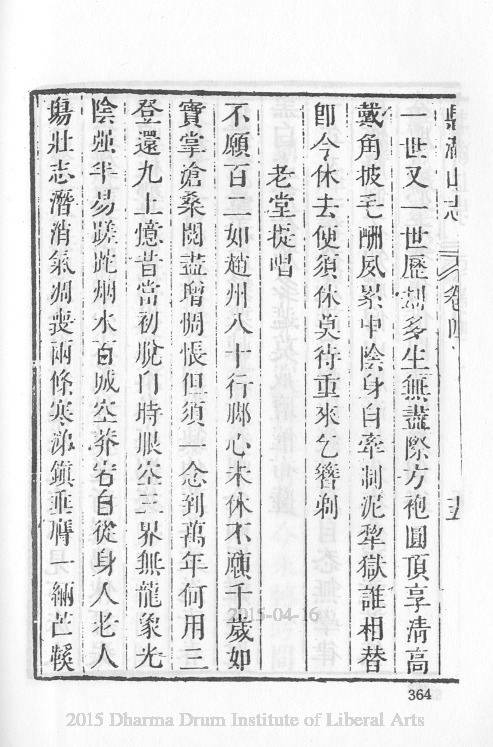 鼎湖山志 卷四 十五
一世又一世歷劫多生無盡際方袍圓頂享清高
戴角披毛酬夙累中陰身自牽制泥犂獄誰相替
卽今休去便須休莫待重來乞簪剃
老堂提唱
不願百二如趙州八十行脚心未休不願千歲如
寶掌滄桑閱盡增惆悵但須一念到萬年何用三
登還九上憶昔當初脫白時眼空三界無龍象光
陰強半易蹉跎烟水百城空莽宕自從身入老人
塲壯志潛消氣凋喪兩條寒涕鎮垂膺一緉芒鞵
2015-04-16
364
2015 Dharma Drum Institute of Liberal Arts